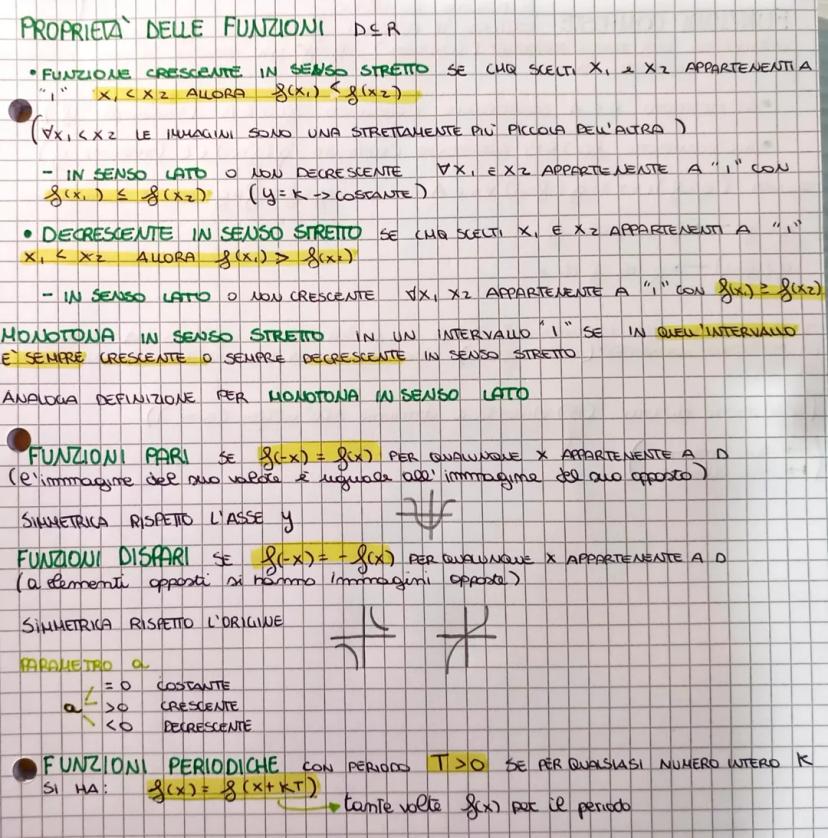 PROPRIETÀ DELLE FUNZIONI D⊆R
• FUNZIONE CRESCENTE IN SENSO STRETTO SE CMQ SCELTI X₁ e X₂ APPARTENENTI A
"I" X₁ < X₂ ALLORA f(x₁) < f(x₂)
(∀x₁ < x₂ LE IMMAGINI SONO UNA STRETTAMENTE PIÙ PICCOLA DELL'ALTRA)
- IN SENSO LATO O NON DECRESCENTE ∀X₁ E X₂ APPARTENENTE A "I" CON
f(x₁) ≤ f(x₂) (y=K → COSTANTE)
• DECRESCENTE IN SENSO STRETTO SE CMQ SCELTI X₁ E X₂ APPARTENENTI A "I"
X₁ < X₂ ALLORA f(x₁) > f(x₂)
- IN SENSO LATO O NON CRESCENTE ∀X₁ X₂ APPARTENENTE A "I" CON f(x₁) ≥ f(x₂)
MONOTONA IN SENSO STRETTO IN UN INTERVALLO "I" SE IN QUELL'INTERVALLO
E' SEMPRE CRESCENTE O SEMPRE DECRESCENTE IN SENSO STRETTO
ANALOGA DEFINIZIONE PER MONOTONA IN SENSO LATO
FUNZIONI PARI SE f(-x) = f(x) PER QUALUNQUE X APPARTENENTE A D
(l'immagine del suo valore è uguale all'immagine del suo opposto)
SIMMETRICA RISPETTO L'ASSE y
FUNZIONI DISPARI SE f(-x) = - f(x) PER QUALUNQUE X APPARTENENTE A D
(a elementi opposti si hanno immagini opposte)
SIMMETRICA RISPETTO L'ORIGINE
PARAMETRO a
= 0 COSTANTE
a >0 CRESCENTE
<0 DECRESCENTE
FUNZIONI PERIODICHE CON PERIODO T>0 SE PER QUALSIASI NUMERO INTERO K
SI HA: f(x) = f(x+KT)
tante volte f(x) per il periodo